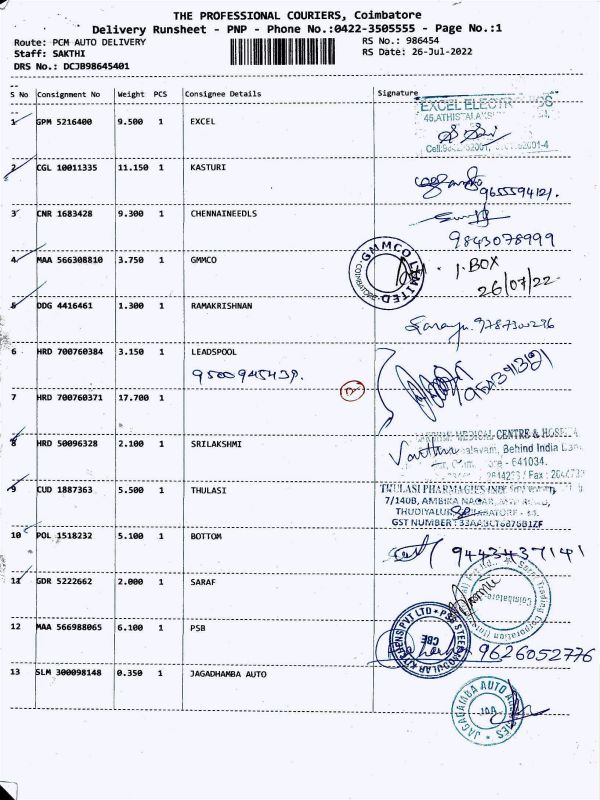 THE PROFESSIONAL COURIERS, Coimbatore
Delivery Runsheet - PNP - Phone No.:0422-3505555 - Page No.:1
Route: PCM AUTO DELIVERY
RS No.: 986454
Staff: SAKTHI
RS Date: 26-Jul-2022
DRS No.: DCJB98645401
S No Consignment No Weight PCS Consignee Details Signature
1 GPM 5216400 9.500 1 EXCEL
EXCEL
2 CGL 10011335 11.150 1 KASTURI
9655594121.
3 CNR 1683428 9.300 1 CHENNAINEEDLS
9843078999
4 MAA 566308810 3.750 1 GMMCO
GMMCO LIMITED
COIMBATORE
1. BOX
26/07/22
5 DDG 4416461 1.300 1 RAMAKRISHNAN
6 HRD 700760384 3.150 1 LEADSPOOL
9500945439.
7 HRD 700760371 17.700 1
8 HRD 50096328 2.100 1 SRILAKSHMI
MEDICAL CENTRE &
Behind India
641034.
Fax :
9 CUD 1887363 5.500 1 THULASI
THULASI PHARMACIES
7/140B, AMBIKA NAGAR,
GST NUMBER
10 POL 1518232 5.100 1 BOTTOM
9443437141
11 GDR 5222662 2.000 1 SARAF
Coimbatore
12 MAA 566988065 6.100 1 PSB
CBE
9626052776
13 SLM 300098148 0.350 1 JAGADHAMBA AUTO
JAGADHAMBA AUTO